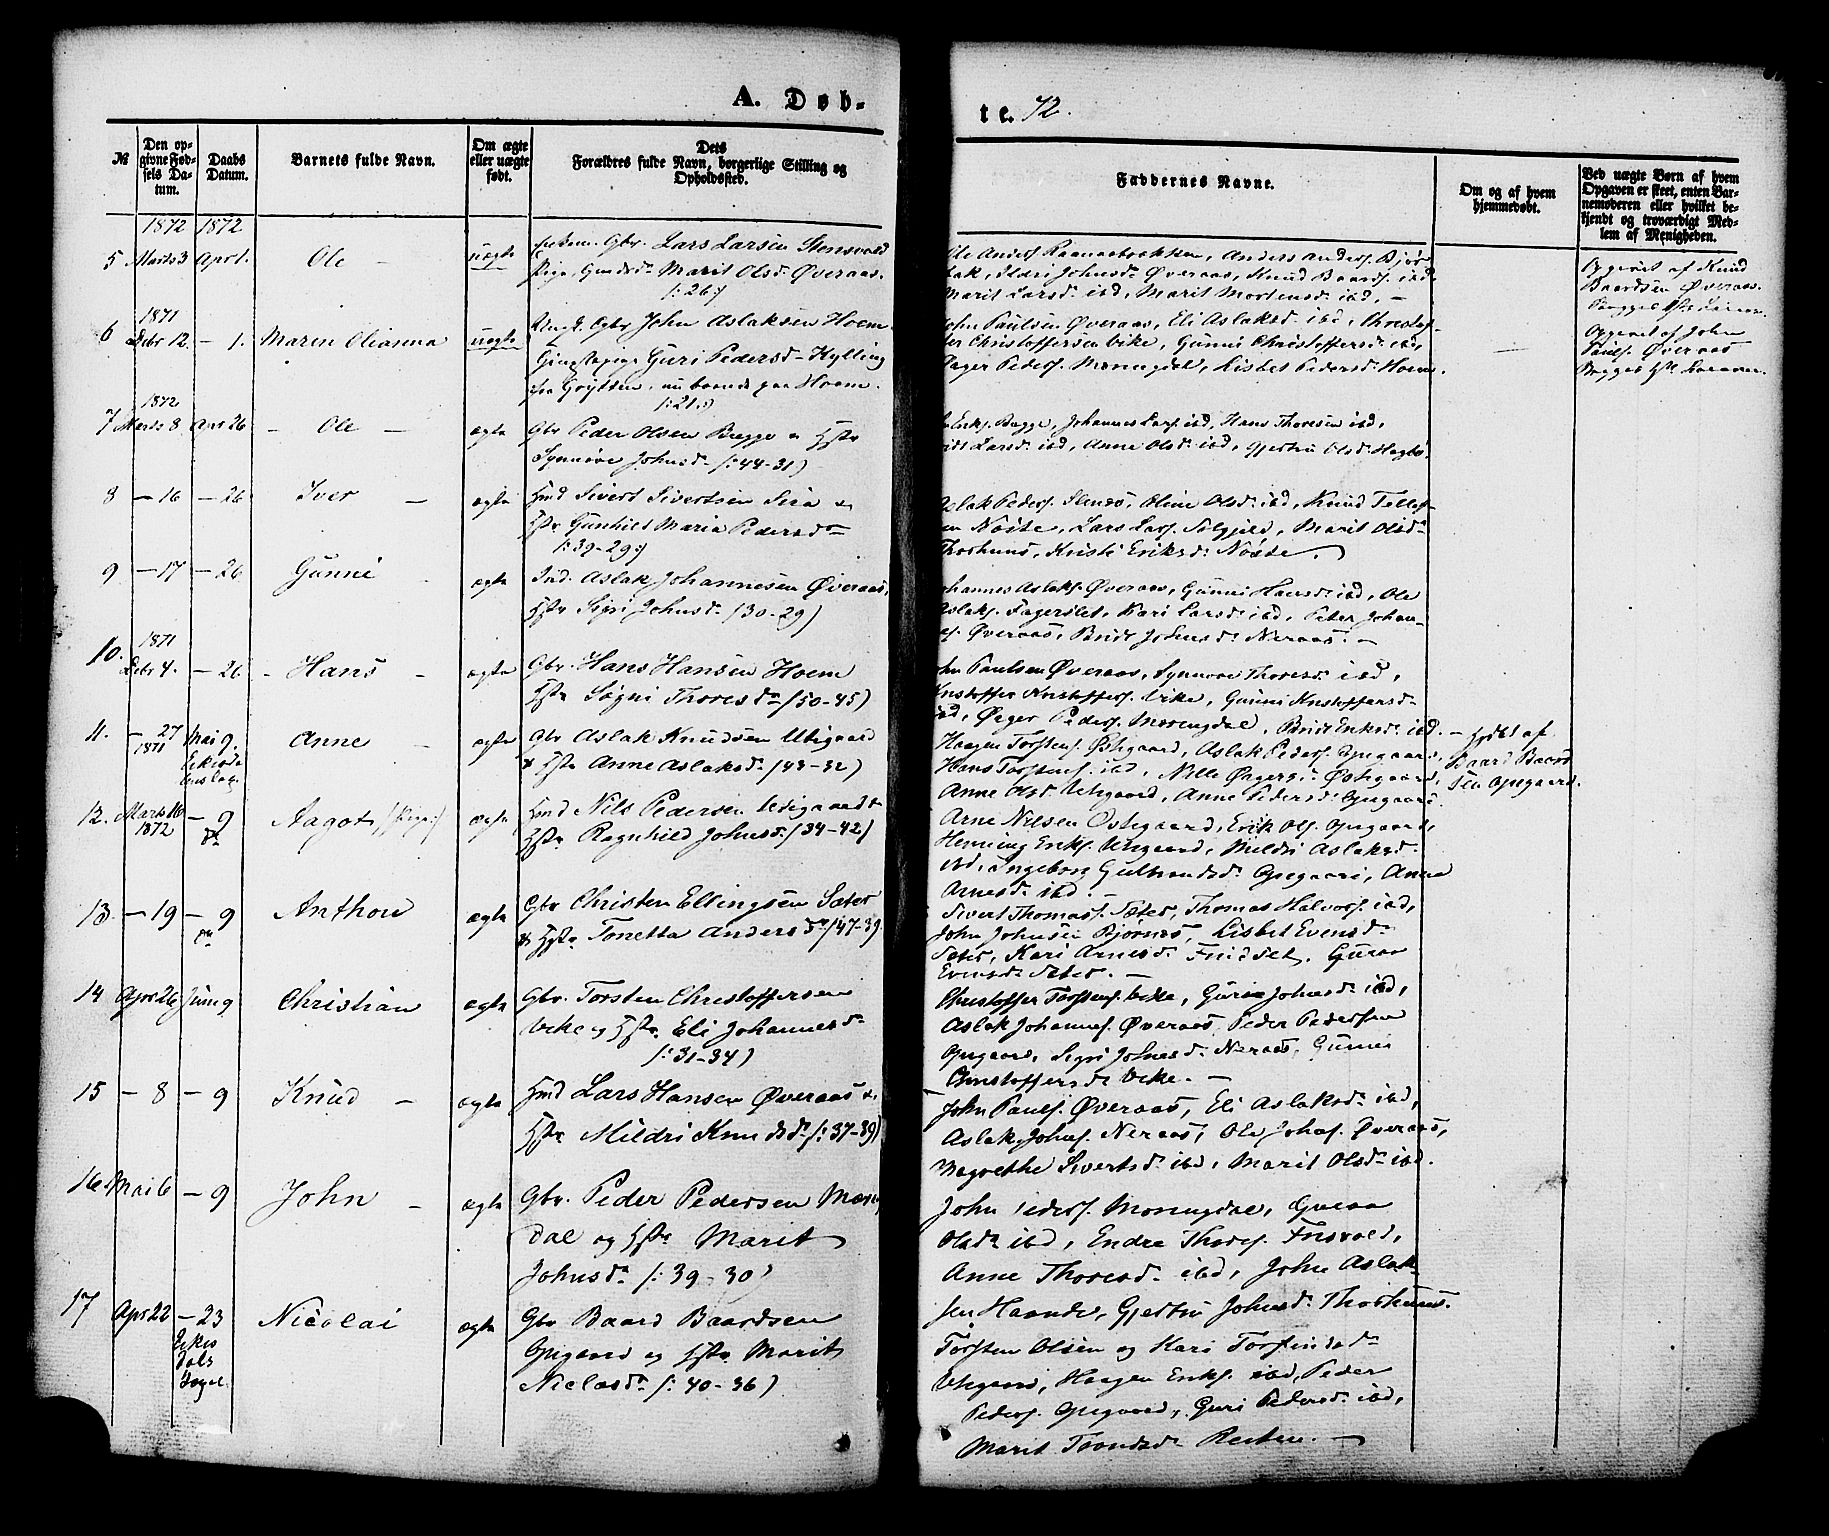 A. Døb-
te. 72.
№
Den op-
givne Fød-
sels Da-
tum.
Daabs
Datum.
Barnets fulde Navn.
Om ægte
eller uægte
født.
Dets
Forældres fulde Navn, borgerlige Stilling og
Opholdssted.
Faddernes Navne.
Om og af hvem
hjemmedøbt.
Ved uægte Børn af hvem
Opgaven er skeet, enten Bar-
nemoderen eller hvilket be-
kjendt og troværdigt Med-
lem af Menigheden.
1872 1872
5 Marts 3 April 1. Ole - uægte
Gbr. Lars Larsen Stensvold
Pige, Marit Olsd. Øveraas.
/:26:/
Ole Anders. Anders Anders. Bjør-
Ildri Johnsd. Øveraas, Knud Baards. ibd,
Marit Larsd. ibd, Marit Mortensd. ibd, -
Opgivet af Knud
Baardsen Øveraas
1871
6 Debr 12. - 1. Maren Olianna uægte
Ungk. Gbr John Aslaksen Hoem
Guri Pedersd. Kylling
fra Grytten, nu boende paa Hoem.
/:21:/
John Paulsen Øveraas, Eli Aslaksd. ibd, Christof-
fer Christoffersen Vike, Gunni Christoffersd. ibd,
Peders. Morengdal, Lisbet Pedersd. Hoem.
Opgivet af John
Pauls. Øveraas
1872
7 Marts 8. Apr 26 - Ole - ægte
Gbr Peder Olsen Bugge & Hstr
Synnøve Johnsd. /:44-31)
Eriks. Bugge, Johannes Lars. ibd, Hans Thoresen ibd,
Larsd. ibd, Anne Olsd. ibd, Gjertru Olsd.
8 - 16 - 26 Iver - ægte
Hmd Sivert Sivertsen Sira &
Hstr Gunhild Maria Pedersd.
/:39-29:/
Aslak Peders. Oline Olsd. ibd, Knud Tellef-
sen Nøste, Lars Lars. Marit Olsd.
Thorhuus, Kristi Eriksd. Nøste.
9 - 17 - 26 Gunni - ægte
Ind. Aslak Johannesen Øveraas,
Hstr Sigri Johnsd. /30-29)
Johannes Aslaks. Øveraas, Gunni Hansd. ibd, Ole
Aslaks. Fagerslet, Kari Larsd. ibd, Peter Johan-
s. Øveraas, Beret Johnsd. Neraas. -
1871
10. Debr 4. - 26 - Hans - ægte
Gbr. Hans Hansen Hoem
Hstr Søgni Thoresd. /50-45)
John Paulsen Øveraas, Synnøve Thoresd. ibd,
Kristoffer Kristoffers. Vike, Gunni Kristoffersd.
ibd, Peders. Morengdal, Eriksd. ibd.
11. - 27 Mai 9. Anne - ægte
1871
Gbr Aslak Knudsen Utigaard
& Hstr Anne Aslaksd. /43-32)
Haagen Torstens. Østigaard, Aslak Peders. Opigaard,
Hans Torstens. ibd, Østigaard,
Anne Olsd. Utigaard, Anne Pedersd. Opigaard.
- Hjdbt af
Baard Baard-
sen Opigaard.
12. Marts 16 - 9 Aagot, /:Pige:/ ægte
1872
Hmd Nils Pedersen Utigaard &
Hstr Ragnhild Johnsd. /34-42)
Arne Nilsen Østigaard, Erik Ols. Opigaard,
Henning Eriks. Utigaard, Mildri Aslaksd.
ibd, Ingeborg Gulbrandsd. Opigaard, Anne
Arnesd. ibd -
13. - 19 - 9 Anthon ægte
Gbr Christen Ellingsen Sæter
& Hstr Tonetta Andersd. /47-39
Sivert Thomas. Sæter, Thomas Halvors. ibd,
John Johnsen Bjørnes, Lisbet Evensd.
Sæter, Kari Arnesd. Guroe
Evensd. Sæter. -
14 Apr 26 Juni 9 Christian ægte
Gbr. Torsten Christoffersen
Vike og Hstr. Eli Johannesd.
/:31-34)
Christoffer Torstens. Vike, Guri Johnsd. ibd,
Aslak Johannes. Øveraas, Peder Pedersen
Opigaard, Sigri Johnsd. Neraas, Gunni
Christoffersd. Vike. -
15 - 8 - 9 Knud - ægte
Hmd Lars Hansen Øveraas &
Hstr Mildri Knudsd. /:37-39)
John Pauls. Øveraas, Eli Aslaksd. ibd,
Aslak Johns. Neraas, Ole Johns. Øveraas,
Magrethe Sivertsd. ibd, Marit Olsd. ibd.
16 Mai 6 - 9 John - ægte
Gbr. Peder Pedersen Moreng-
dal og Hstr Marit
Johnsd. /:39-30)
John Peders. Morengdal, Guroe
Olsd. ibd, Endre Thores. Frisvold,
Anne Thoresd. ibd, John Aslak-
sen Haande, Gjertru Johnsd. Thorhuus.
17 Apr 22 - 23 Nicolai ægte
Gbr Baard Baardsen
Opigaard og Hstr Marit
Niclasd. /:40-36)
Torsten Olsen og Kari Torfinsd.
Utigaard, Haagen Eriks. ibd, Peder
Peders. Opigaard, Guri Pedersd. ibd,
Marit Trondsd. -